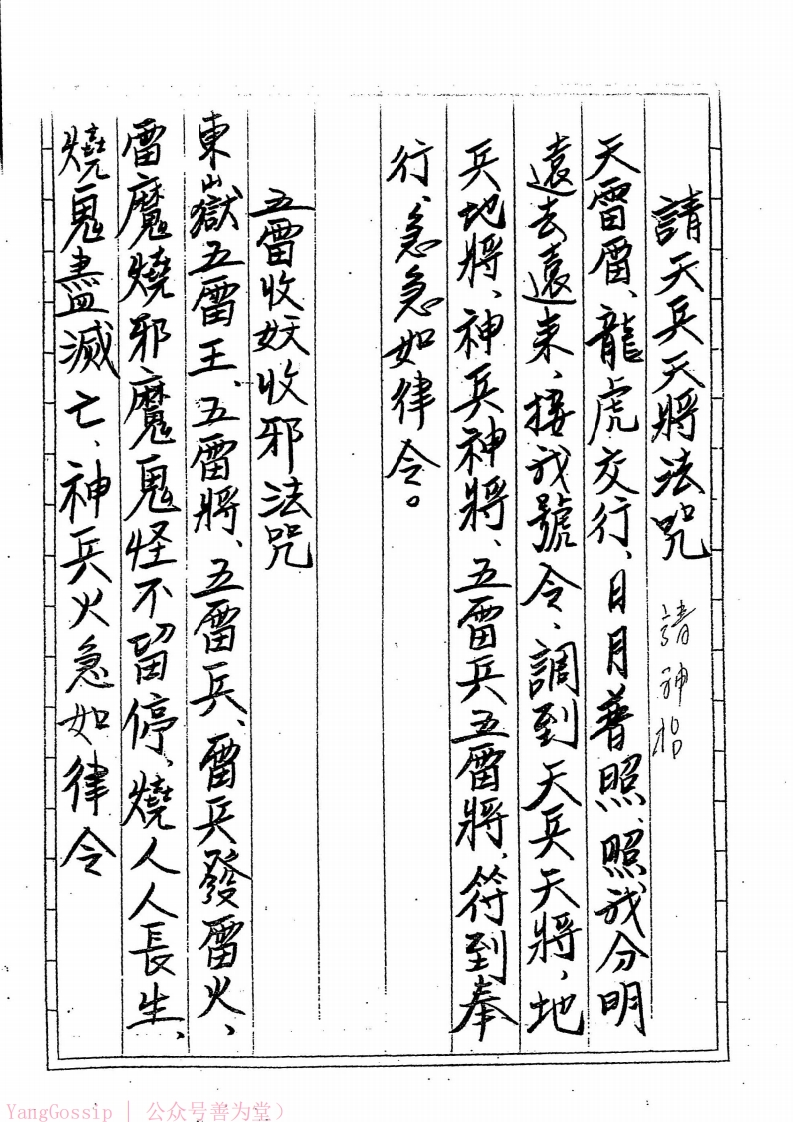 請天兵天將法咒 請神指
天雷雷、龍虎交行、日月普照、照我分明
遠去遠來、接我號令、調到天兵天將、地
兵地將、神兵神將、五雷兵五雷將、符到奉
行、急急如律令。
五雷收妖收邪法咒
東山獄五雷王、五雷將、五雷兵、雷兵發雷火、
雷魔燒邪魔鬼怪不留停、燒人人長生、
燒鬼鬼盡滅亡、神兵火急如律令
YangGossip | 公众号善为堂）